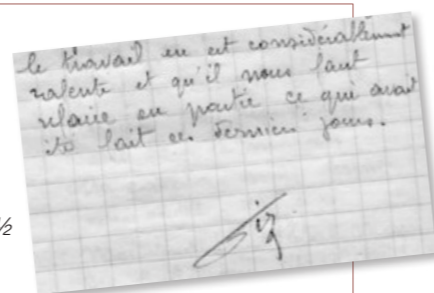 le travail en est considérablement
ralenti et qu'il nous faut
refaire en partie ce qui avait
été fait ces derniers jours.
½